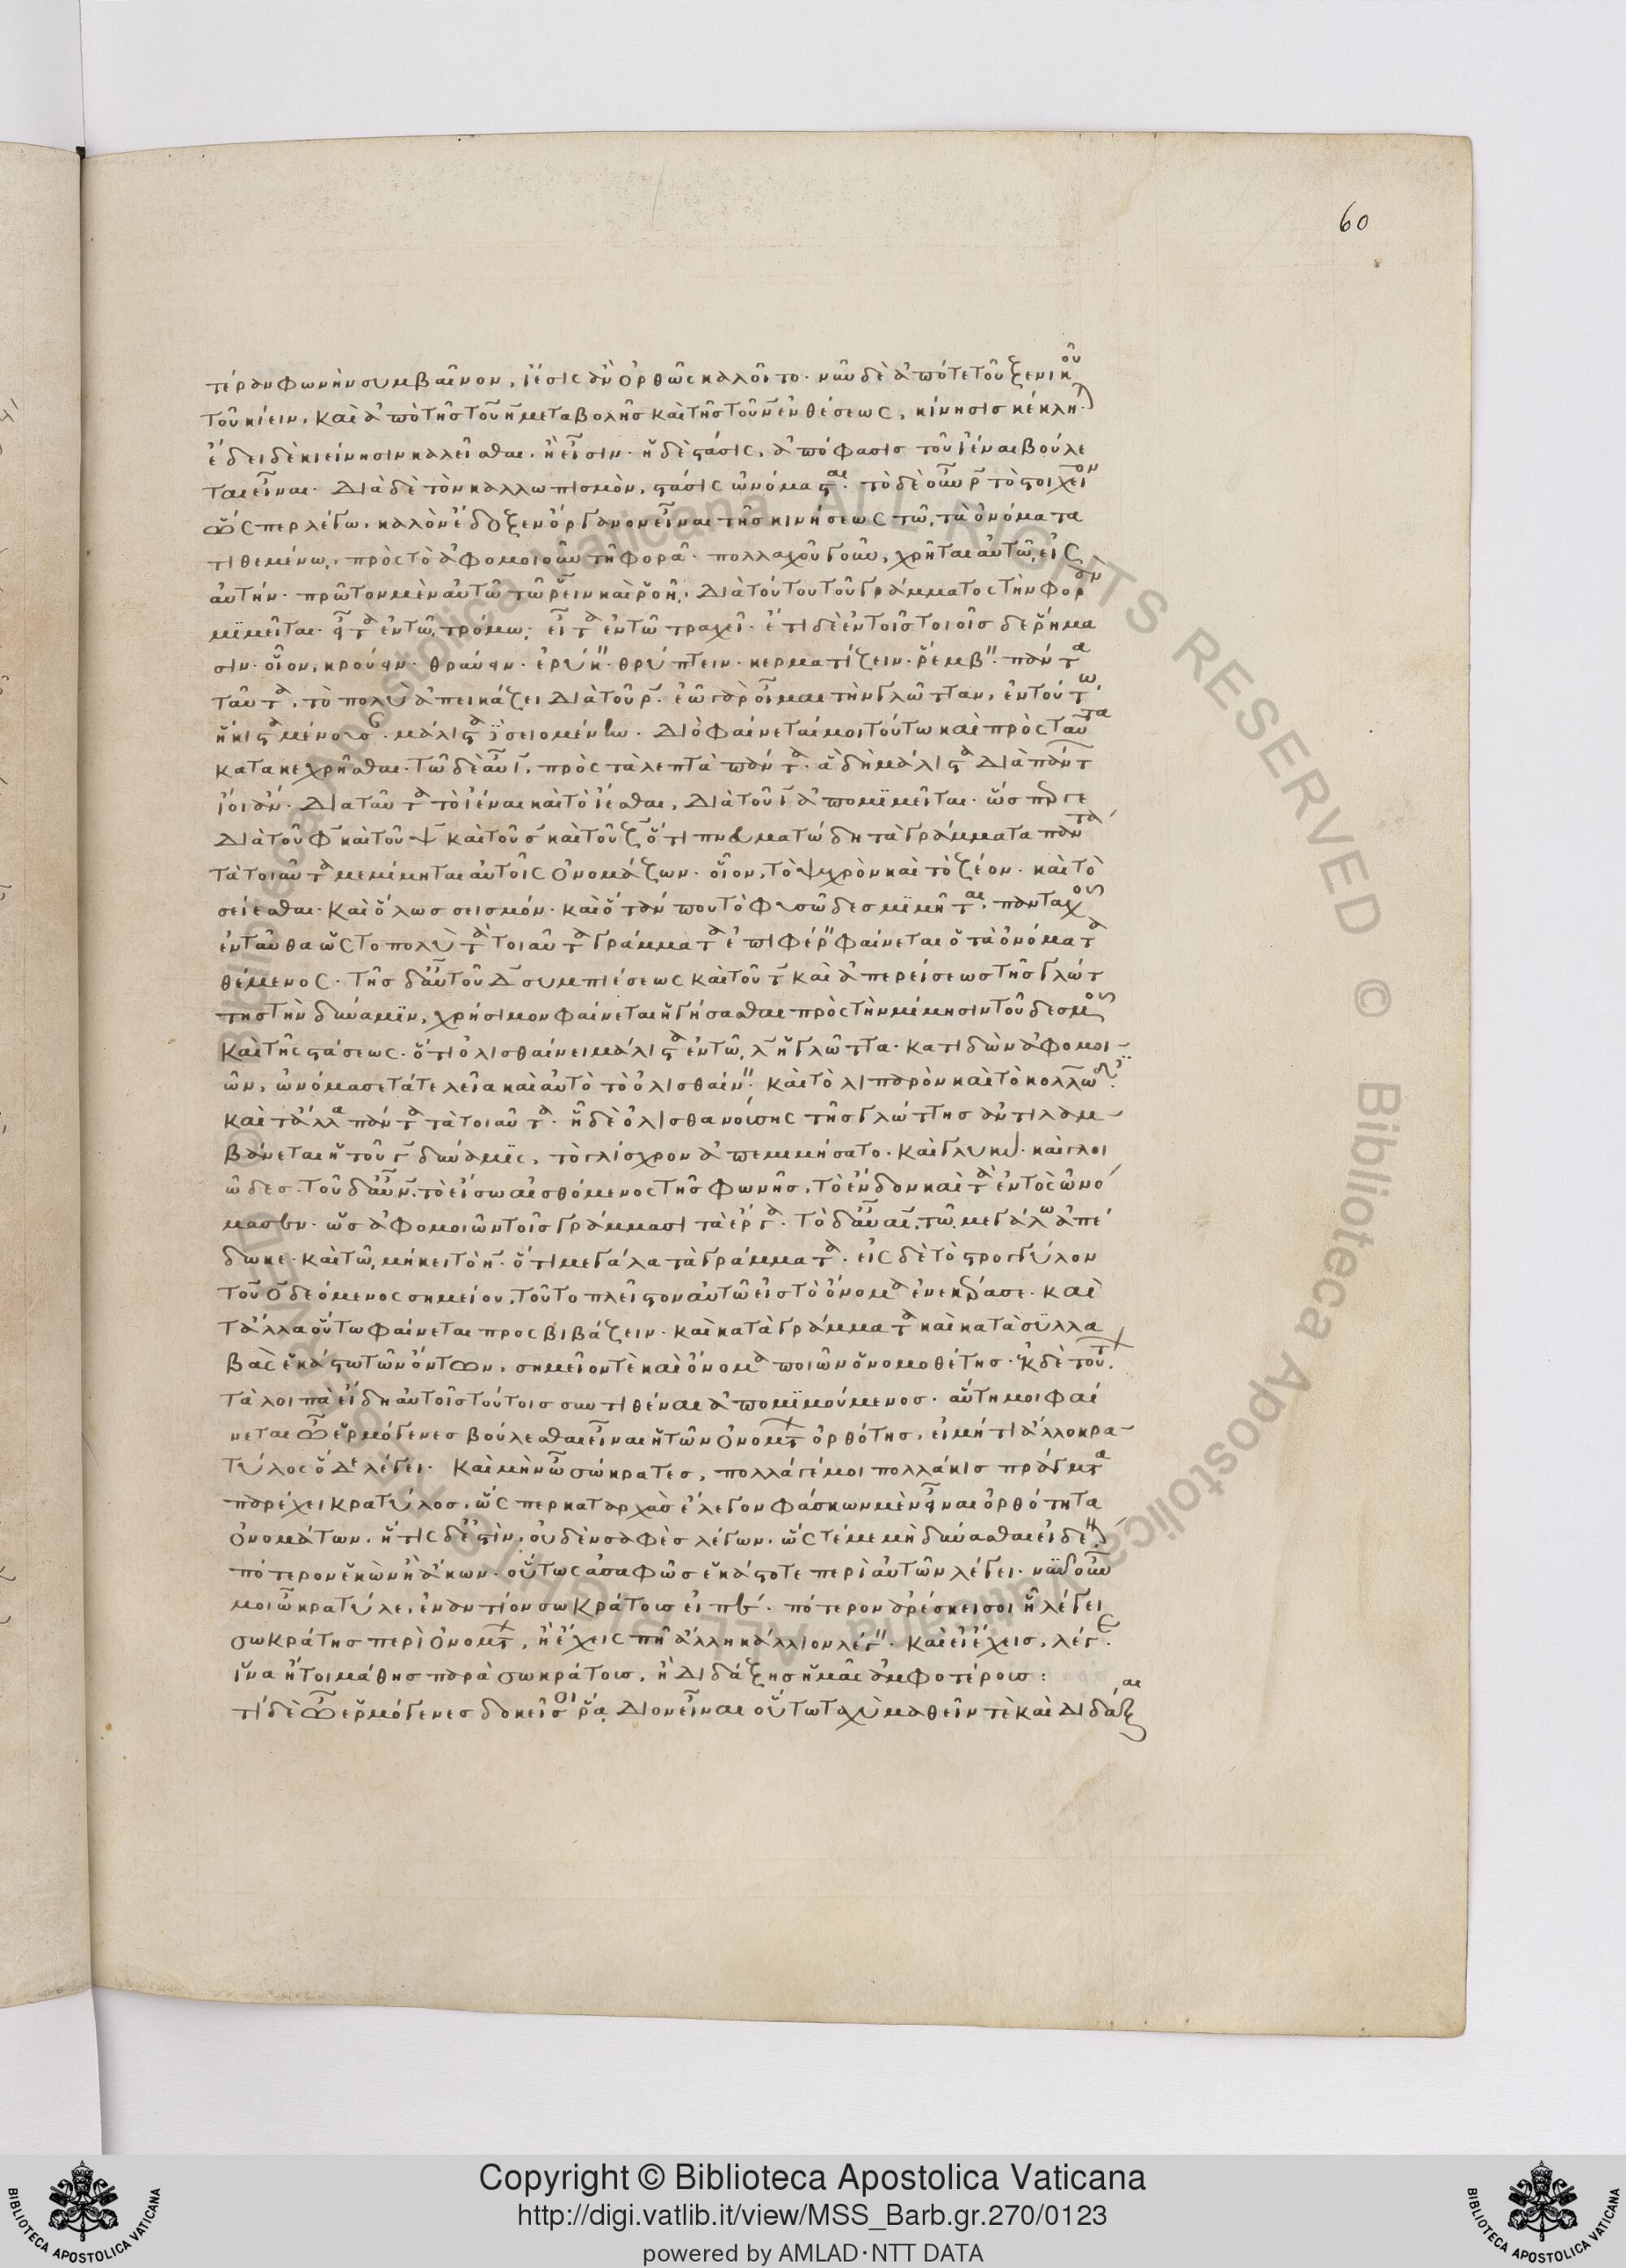 60
τέραν φωνὴν συμβαῖνον, ἵεσις ἂν ὀρθῶς καλοῖτο· νῦν δὲ ἀπό τε τοῦ ξενικοῦ
τοῦ κίειν, καὶ ἀπὸ τῆς τοῦ η μεταβολῆς καὶ τῆς τοῦ ν ἐνθέσεως, κίνησις κέκλη·
ἔδει δὲ κιείνησιν καλεῖσθαι, ἢ εἶσιν· ἡ δὲ στάσις, ἀπόφασις τοῦ ἰέναι βούλε
ται εἶναι· διὰ δὲ τὸν καλλωπισμὸν, στάσις ὠνόμασται· τὸ δὲ οὖν ρ τὸ στοιχεῖον
ὥσπερ λέγω, καλὸν ἔδοξεν ὄργανον εἶναι τῆς κινήσεως τῶ, τὰ ὀνόματα
τιθεμένω, πρὸς τὸ ἀφομοιοῦν τῇ φορᾶ· πολλαχοῦ γοῦν, χρῆται αὐτῶ, εἰς
αὐτήν· πρῶτον μὲν αὐτῶ τῶ ῥεῖν καὶ ῥοῇ, διὰ τούτου τοῦ γράμματος τὴν φορὰν
μϊμεῖται· εἶτα ἐν τῶ, τρόμω, εἶτα ἐν τῶ τραχεῖ· ἔτι δὲ ἐν τοῖς τοιοῖσδε ῥήμα
σιν· οἷον, κρούειν· θραύειν· ἐρύκειν· θρύπτειν· κερματίζειν· ῥέμβειν· πάντα
ταῦτα, τὸ πολὺ ἀπεικάζει διὰ τοῦ ρ· ἑώ γὰρ οἶμαι τὴν γλῶτταν, ἐν τούτω,
ἥκιστα μένουσ· μάλιστα σειομένην· διὸ φαίνεταί μοι τούτω καὶ πρὸς ταῦτα
κατακεχρῆσθαι· τῶ δὲ αὖ ι, πρὸς τὰ λεπτὰ πάντα· ἃ δὴ μάλιστα διὰ πάντ
ἴοι ἄν· διὰ ταῦτα τὸ ἰέναι καὶ τὸ ἵεσθαι, διὰ τοῦ ι ἀπομϊμεῖται· ὥσπερ γε
διὰ τοῦ φ καὶ τοῦ ψ καὶ τοῦ σ καὶ τοῦ ζ ὅτι πνευματώδη τὰ γράμματα πάντα
τὰ τοιαῦτα μεμίμηται αὐτοῖς ὀνομάζων· οἷον, τὸ ψυχρὸν καὶ τὸ ζέον· καὶ τὸ
σείεσθαι· καὶ ὅλως σεισμόν· καὶ ὅταν που τὸ φυσῶδες μϊμῆται, πανταχοῦ
ἐνταῦθα ὡς τοπολὺ τὰ τοιαῦτα γράμματα ἐπιφέρειν φαίνεται ὁ τὰ ὀνόματα
θέμενος· τῆς δ' αὖ τοῦ δ συμπιέσεως καὶ τοῦ τ καὶ ἀπερείσεως τῆς γλώτ
της τὴν δύναμϊν, χρήσιμον φαίνεται ἡγήσασθαι πρὸς τὴν μίμησιν τοῦ δεσμοῦ
καὶ τῆς στάσεως· ὅτι ὀλισθαίνει μάλιστα ἐν τῶ, λ ἡ γλῶττα· κατιδὼν ἀφομοι
ῶν, ὠνόμασε τά τε λεῖα καὶ αὐτὸ τὸ ὀλισθαίνειν· καὶ τὸ λιπαρὸν καὶ τὸ κολλῶδες·
καὶ τἄλλα πάντα τὰ τοιαῦτα· ᾗ δὲ ὀλισθανούσης τῆς γλώττης ἀντιλαμ
βάνεται ἡ τοῦ γ δύναμϊς, τὸ γλίσχρον ἀπεμιμήσατο· καὶ γλυκὺ· καὶ γλοι
ῶδες· τοῦ δ' αὖ ν, τὸ εἴσω αἰσθόμενος τῆς φωνῆς, τὸ ἔνδον καὶ τὰ ἐντὸς ὠνό
μασεν· ὡς ἀφομοιῶν τοῖς γράμμασι τὰ ἔργα· τὸ δ' αὖ α, τῶ, μεγάλω ἀπέ
δωκε· καὶ τῶ, μήκει τὸ η· ὅτι μεγάλα τὰ γράμματα· εἰς δὲ τὸ στρογγύλον
τοῦ ο δεόμενος σημείου, τοῦτο πλεῖστον αὐτῶ εἰς τὸ ὄνομα ἐνεκέρασε· καὶ
τἄλλα οὕτω φαίνεται προσβιβάζειν· καὶ κατὰ γράμματα καὶ κατὰ συλλα
βὰς ἑκάστω τῶν ὄντων, σημεῖόν τε καὶ ὄνομα ποιῶν ὁ νομοθέτης· ἐκ δὲ τούτων·
τὰ λοιπὰ εἴδη αὐτοῖς τούτοις συντιθέναι ἀπομϊμούμενος· αὕτη μοι φαί
νεται ὦ ἑρμόγενες βούλεσθαι εἶναι ἡ τῶν ὀνομάτων ὀρθότης, εἰ μή τι ἄλλο κρα
τύλος ὅδε λέγει· καὶ μὴν ὦ σώκρατες, πολλά γέ μοι πολλάκις πράγματα
παρέχει κρατύλος, ὥσπερ κατ αρχὰς ἔλεγον φάσκων μὲν εἶναι ὀρθότητα
ὀνομάτων, ἥτις δ' ἐστὶν, οὐδὲν σαφὲς λέγων, ὥστέ με μὴ δύνασθαι εἰδέναι
πότερον ἑκὼν ἢ ἄκων· οὕτως ἀσαφῶς ἑκάστοτε περὶ αὐτῶν λέγει· νῦν οὖν
μοι ὦ κρατύλε, ἐναντίον σωκράτους εἰπέ· πότερον ἀρέσκει σοι ᾗ λέγει
σωκράτης περὶ ὀνομάτων, ἢ ἔχεις πῃ ἄλλη κάλλιον λέγειν· καὶ εἰ ἔχεις, λέγε·
ἵνα ἤτοι μάθης παρὰ σωκράτους, ἢ διδάξης ἡμᾶς ἀμφοτέρους:
τί δὲ ὦ ἑρμόγενες δοκεῖ σοι ῥάδιον εἶναι οὕτω ταχὺ μαθεῖν τὲ καὶ διδάξαι
© Biblioteca Apostolica Vaticana ALL RIGHTS RESERVED
Copyright © Biblioteca Apostolica Vaticana
http://digi.vatlib.it/view/MSS_Barb.gr.270/0123
powered by AMLAD·NTT DATA
BIBLIOTECA APOSTOLICA VATICANA
BIBLIOTECA APOSTOLICA VATICANA